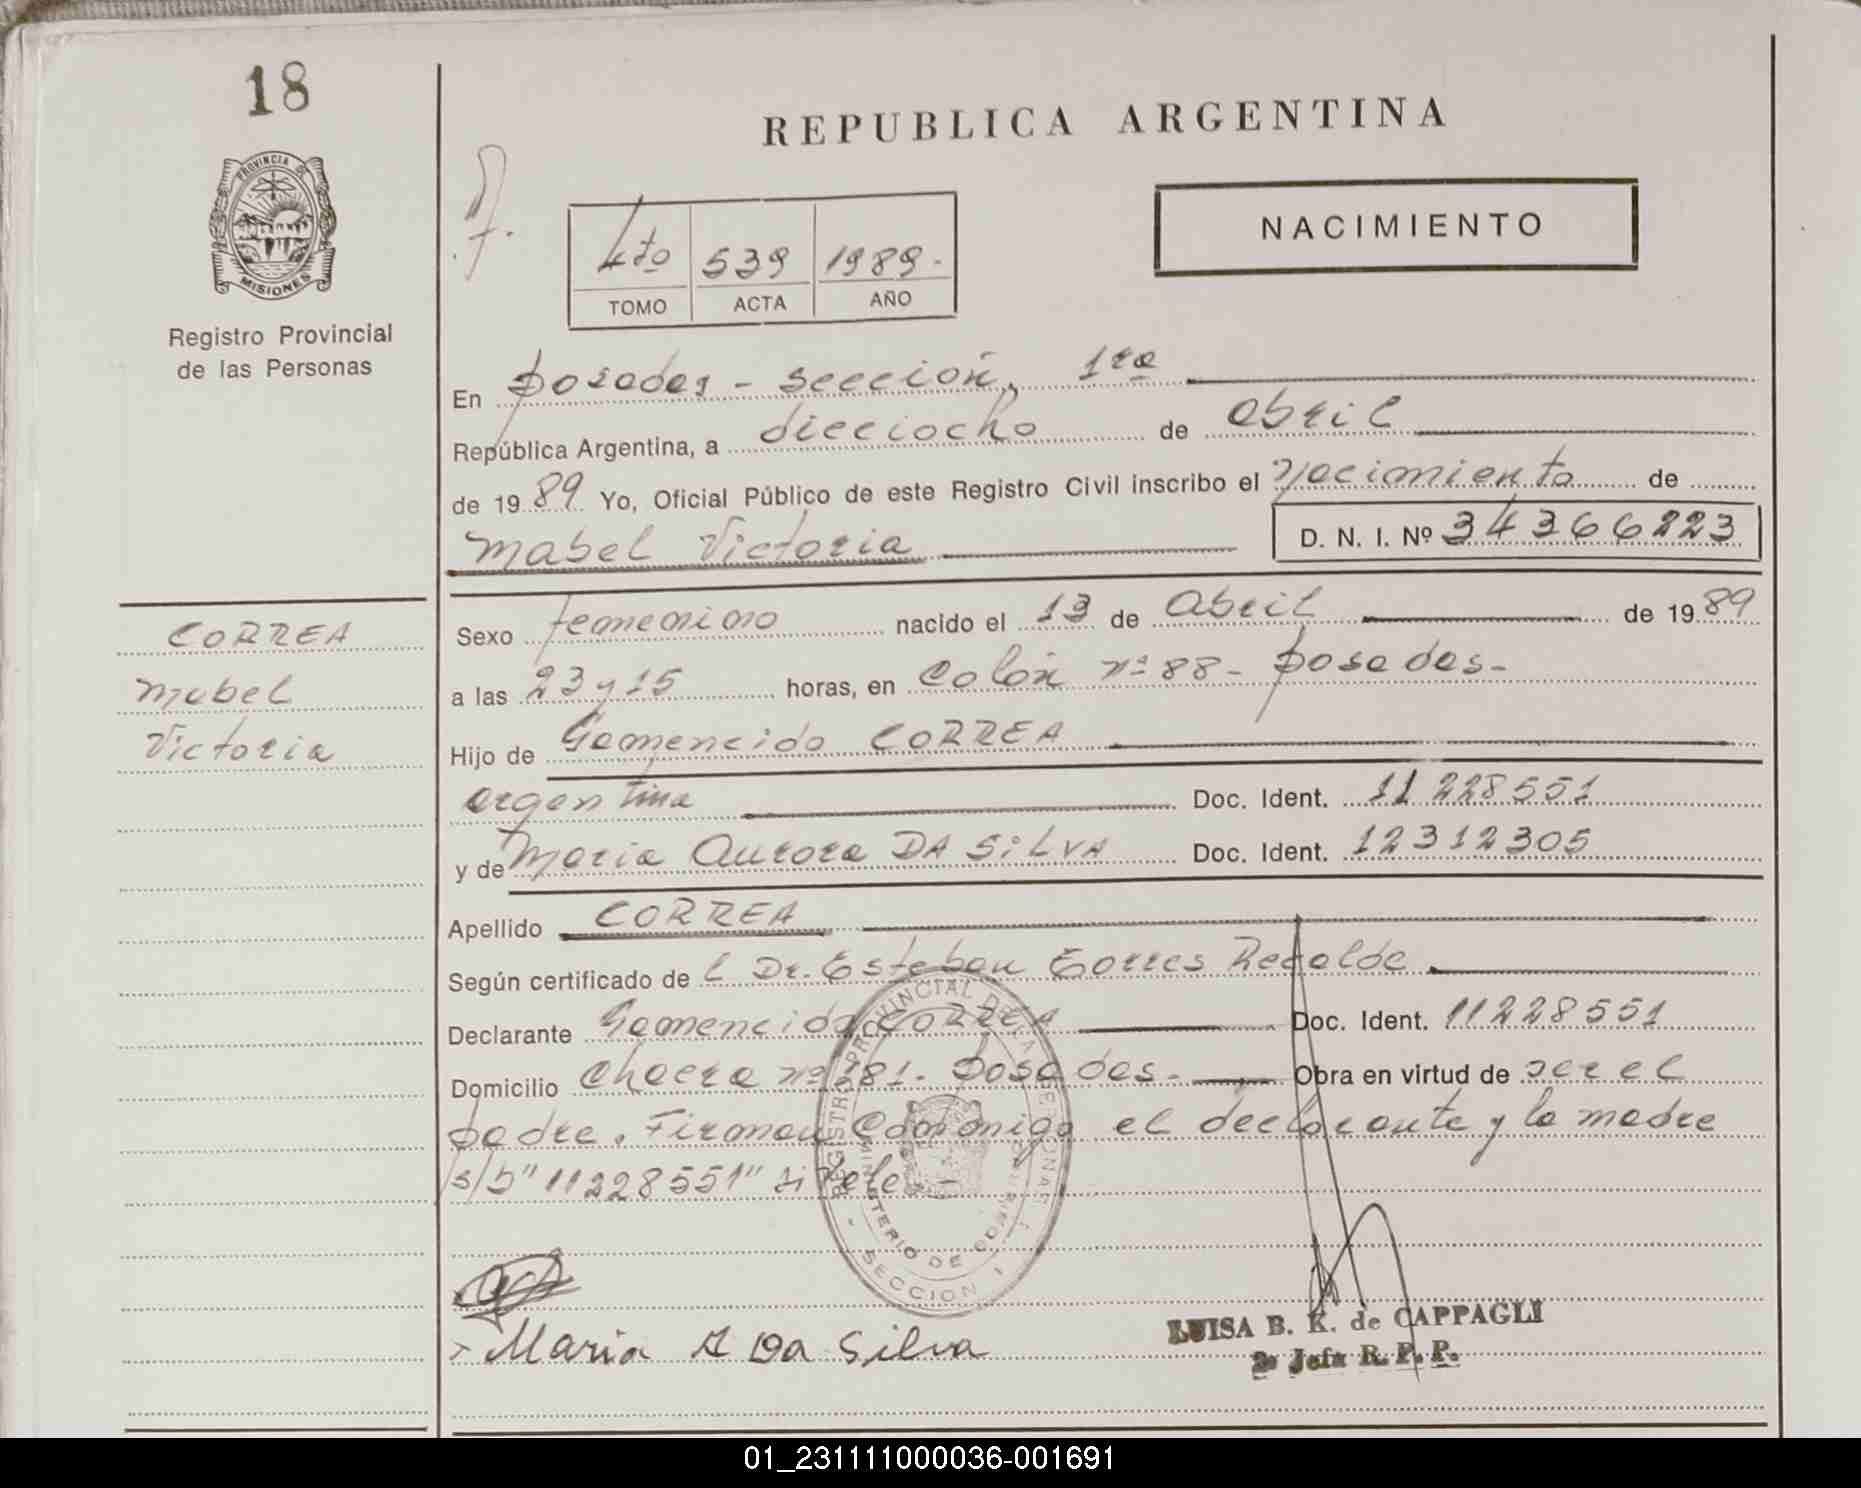 18
PROVINCIA DE
MISIONES
Registro Provincial
de las Personas
CORREA
Mabel
Victoria
REPUBLICA ARGENTINA
NACIMIENTO
4to 539 1989.-
TOMO ACTA AÑO
En Posadas - sección, 1ra
República Argentina, a dieciocho de abril
de 1989 Yo, Oficial Público de este Registro Civil inscribo el Nacimiento de
Mabel Victoria D. N. I. Nº 34366223
Sexo femenino nacido el 13 de Abril de 1989
a las 23 y 15 horas, en Colón nº 88- Posadas-
Hijo de Gamencido CORREA
argentina Doc. Ident. 11 228551
y de Maria Aurora DA SiLVA Doc. Ident. 12312305
Apellido CORREA
Según certificado de l Dr. Esteban Torres Recalde
Declarante Gamencido CORREA Doc. Ident. 11228551
Domicilio Chacra nº 181. Posadas- Obra en virtud de ser el
padre. Firman conmigo el declarante y la madre
s/b "11228551" si vale.-
REGISTRO PROVINCIAL DE LAS PERSONAS
MINISTERIO DE GOBIERNO
- SECCION 1
Maria A Da Silva
LUISA B. K. de CAPPAGLI
2º Jefa R. P. P.
01_231111000036-001691